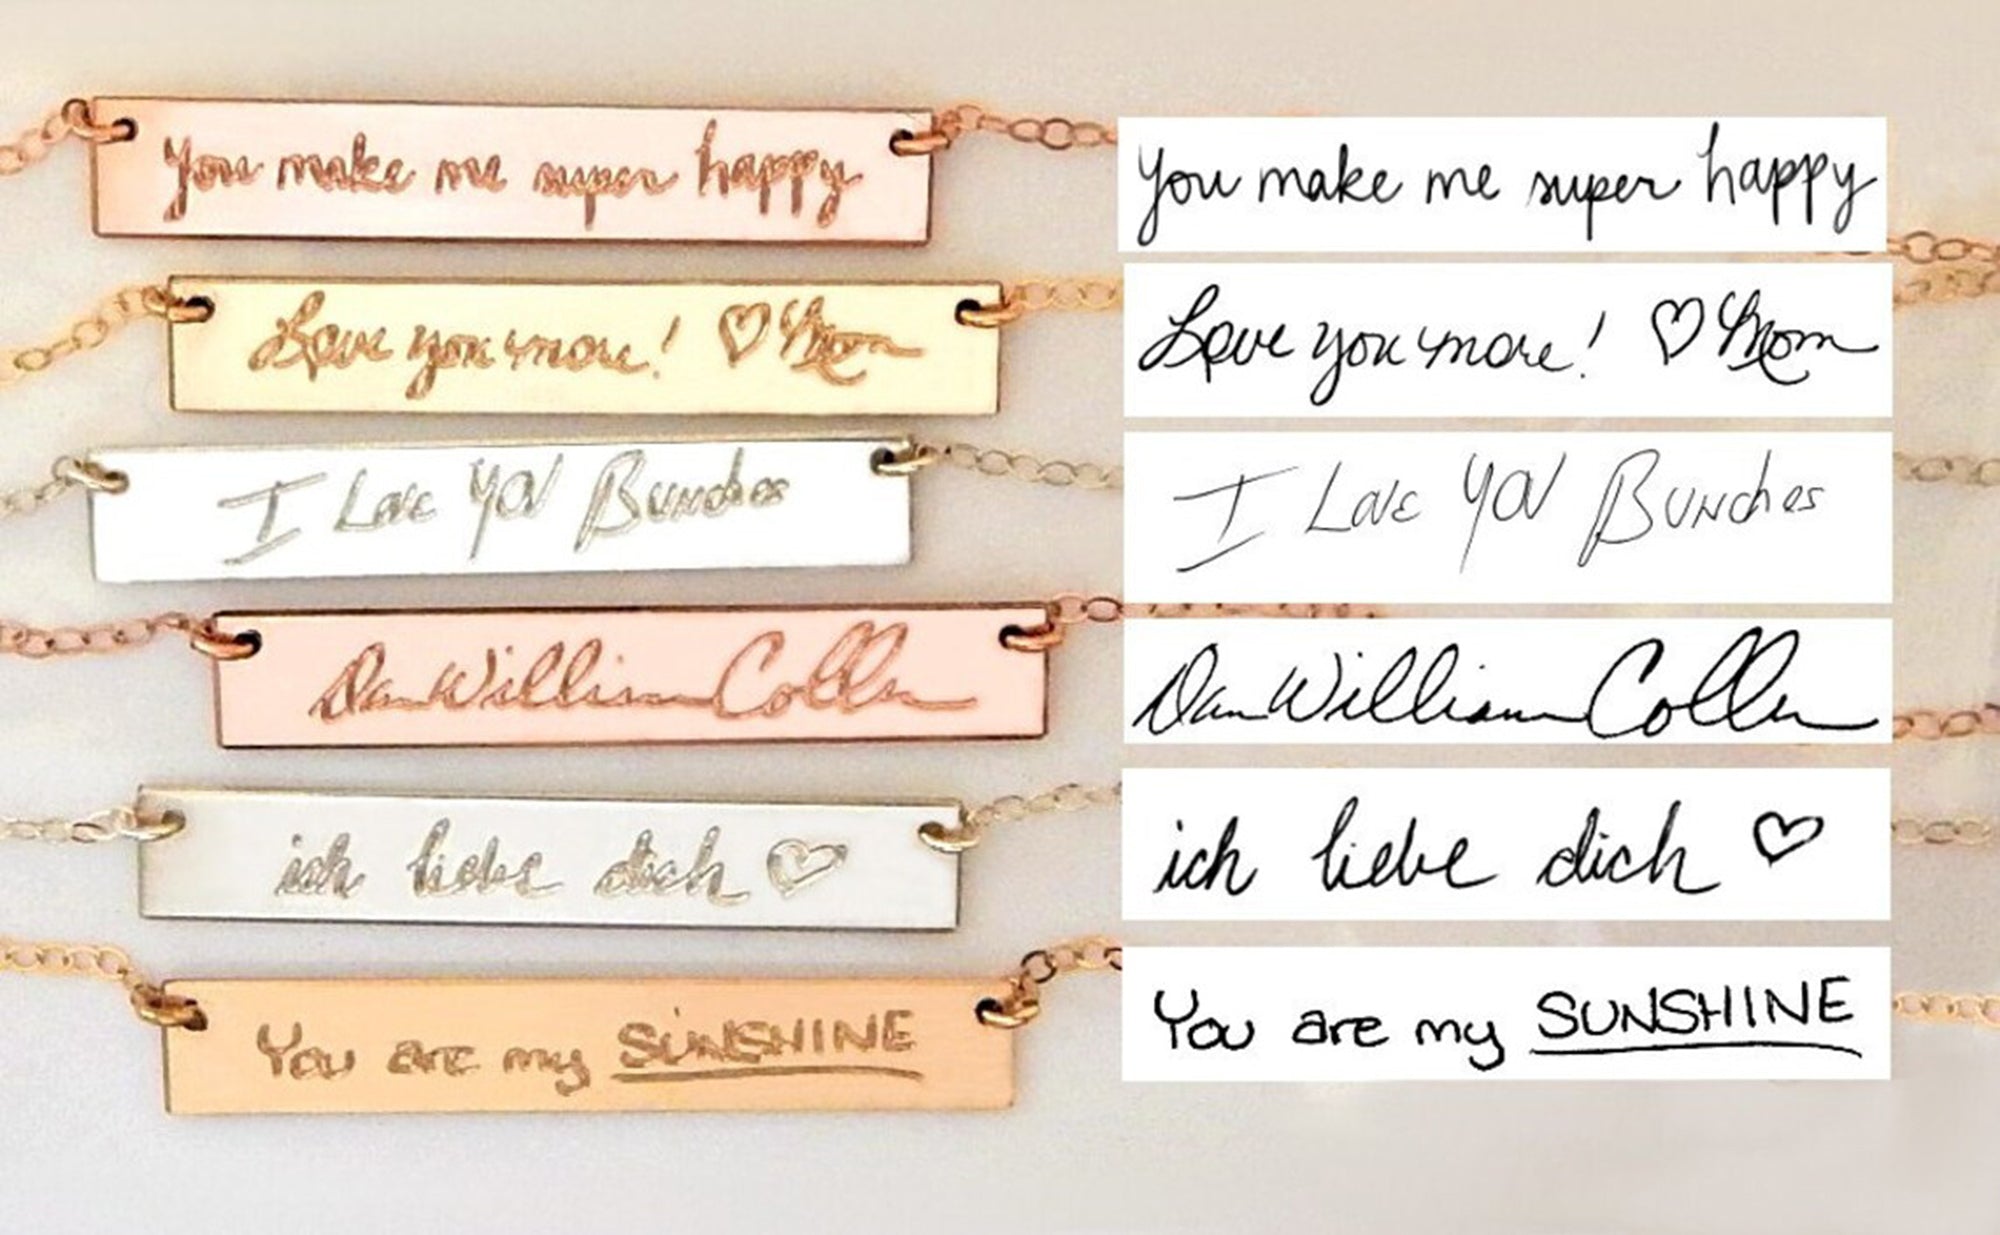 You make me super happy
You make me super happy
Love you more! ♡ Mom
Love you more! ♡ Mom
I Love YOU Bunches
I Love YOU Bunches
Dan William
Dan William
ich liebe dich ♡
ich liebe dich ♡
You are my SUNSHINE
You are my SUNSHINE